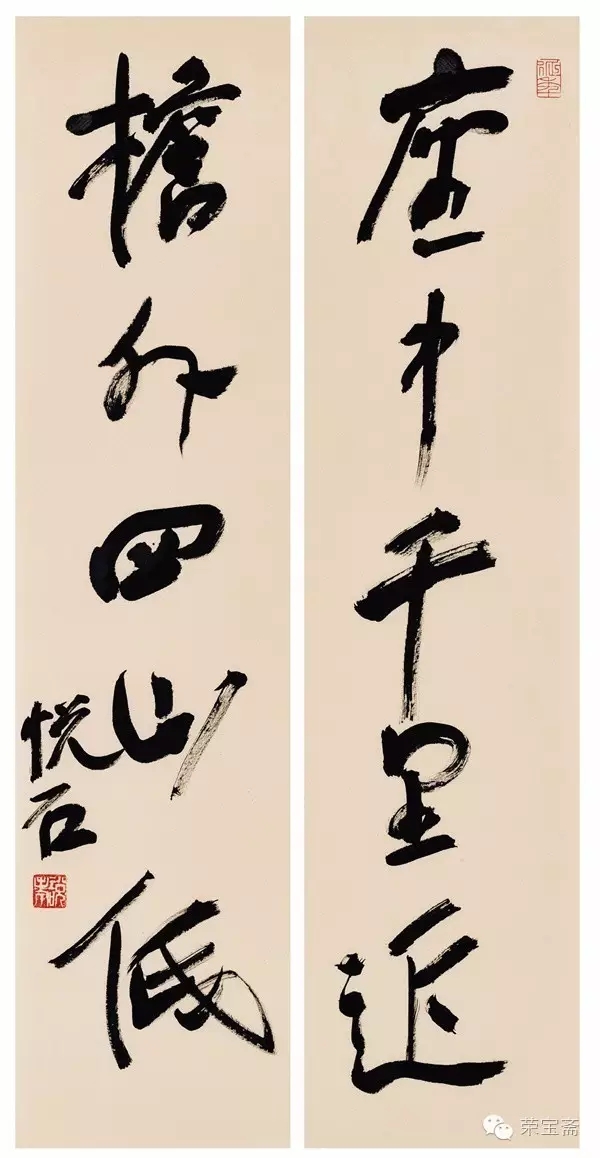 座中千里近
檐外四山低
悦石
荣宝斋